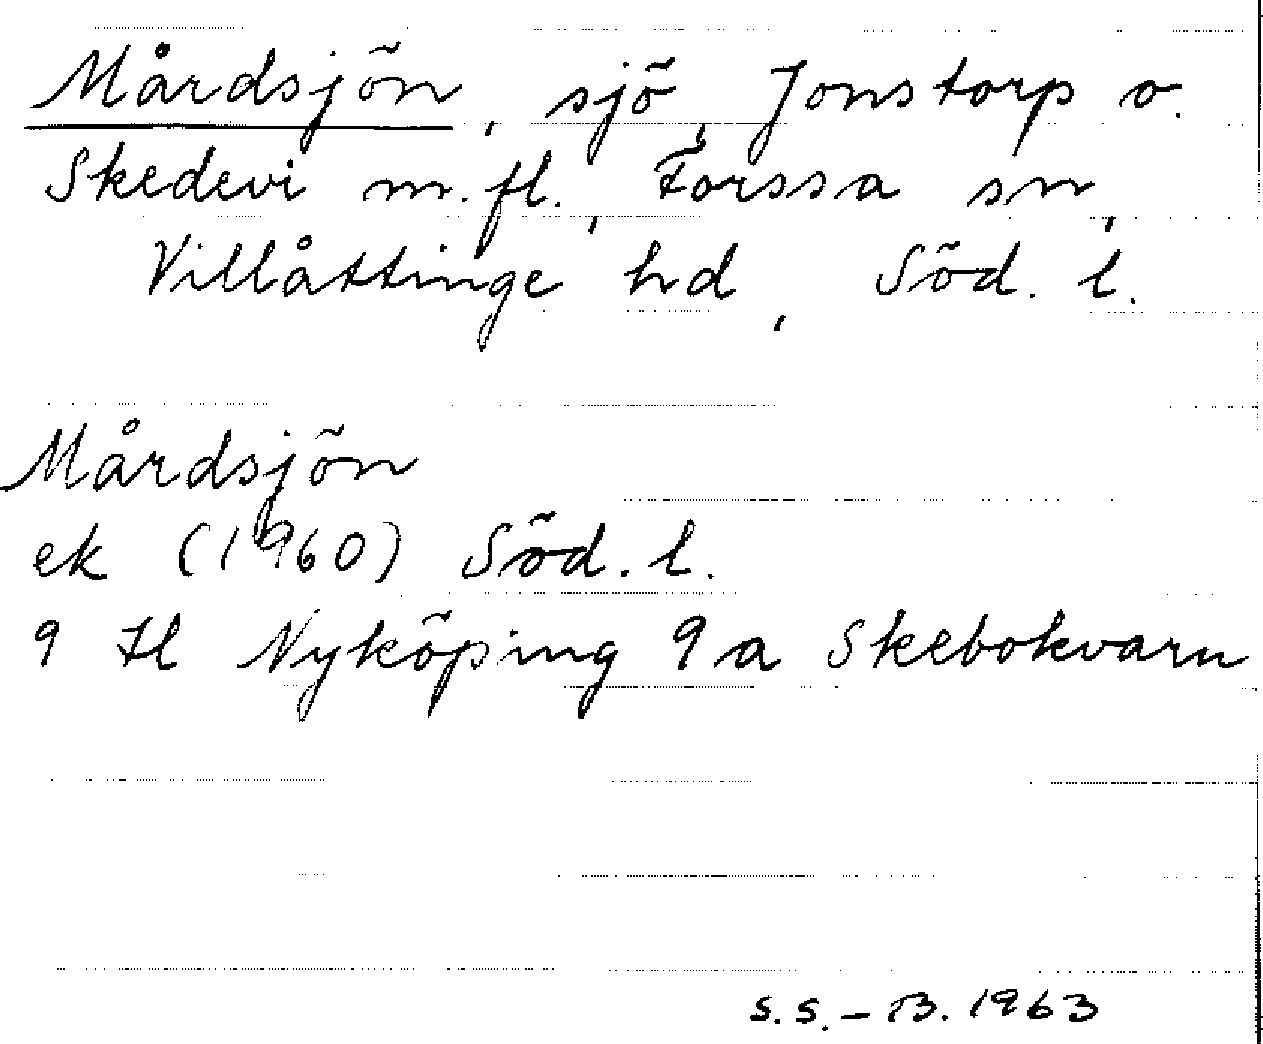 Mårdsjön, sjö, Jonstorp o.
Skedevi m.fl., Forssa sn,
Villåttinge hd, Söd. l.
Mårdsjön
ek (1960) Söd. l.
9 H Nyköping 9a Skebokvarn
S.S.-B. 1963